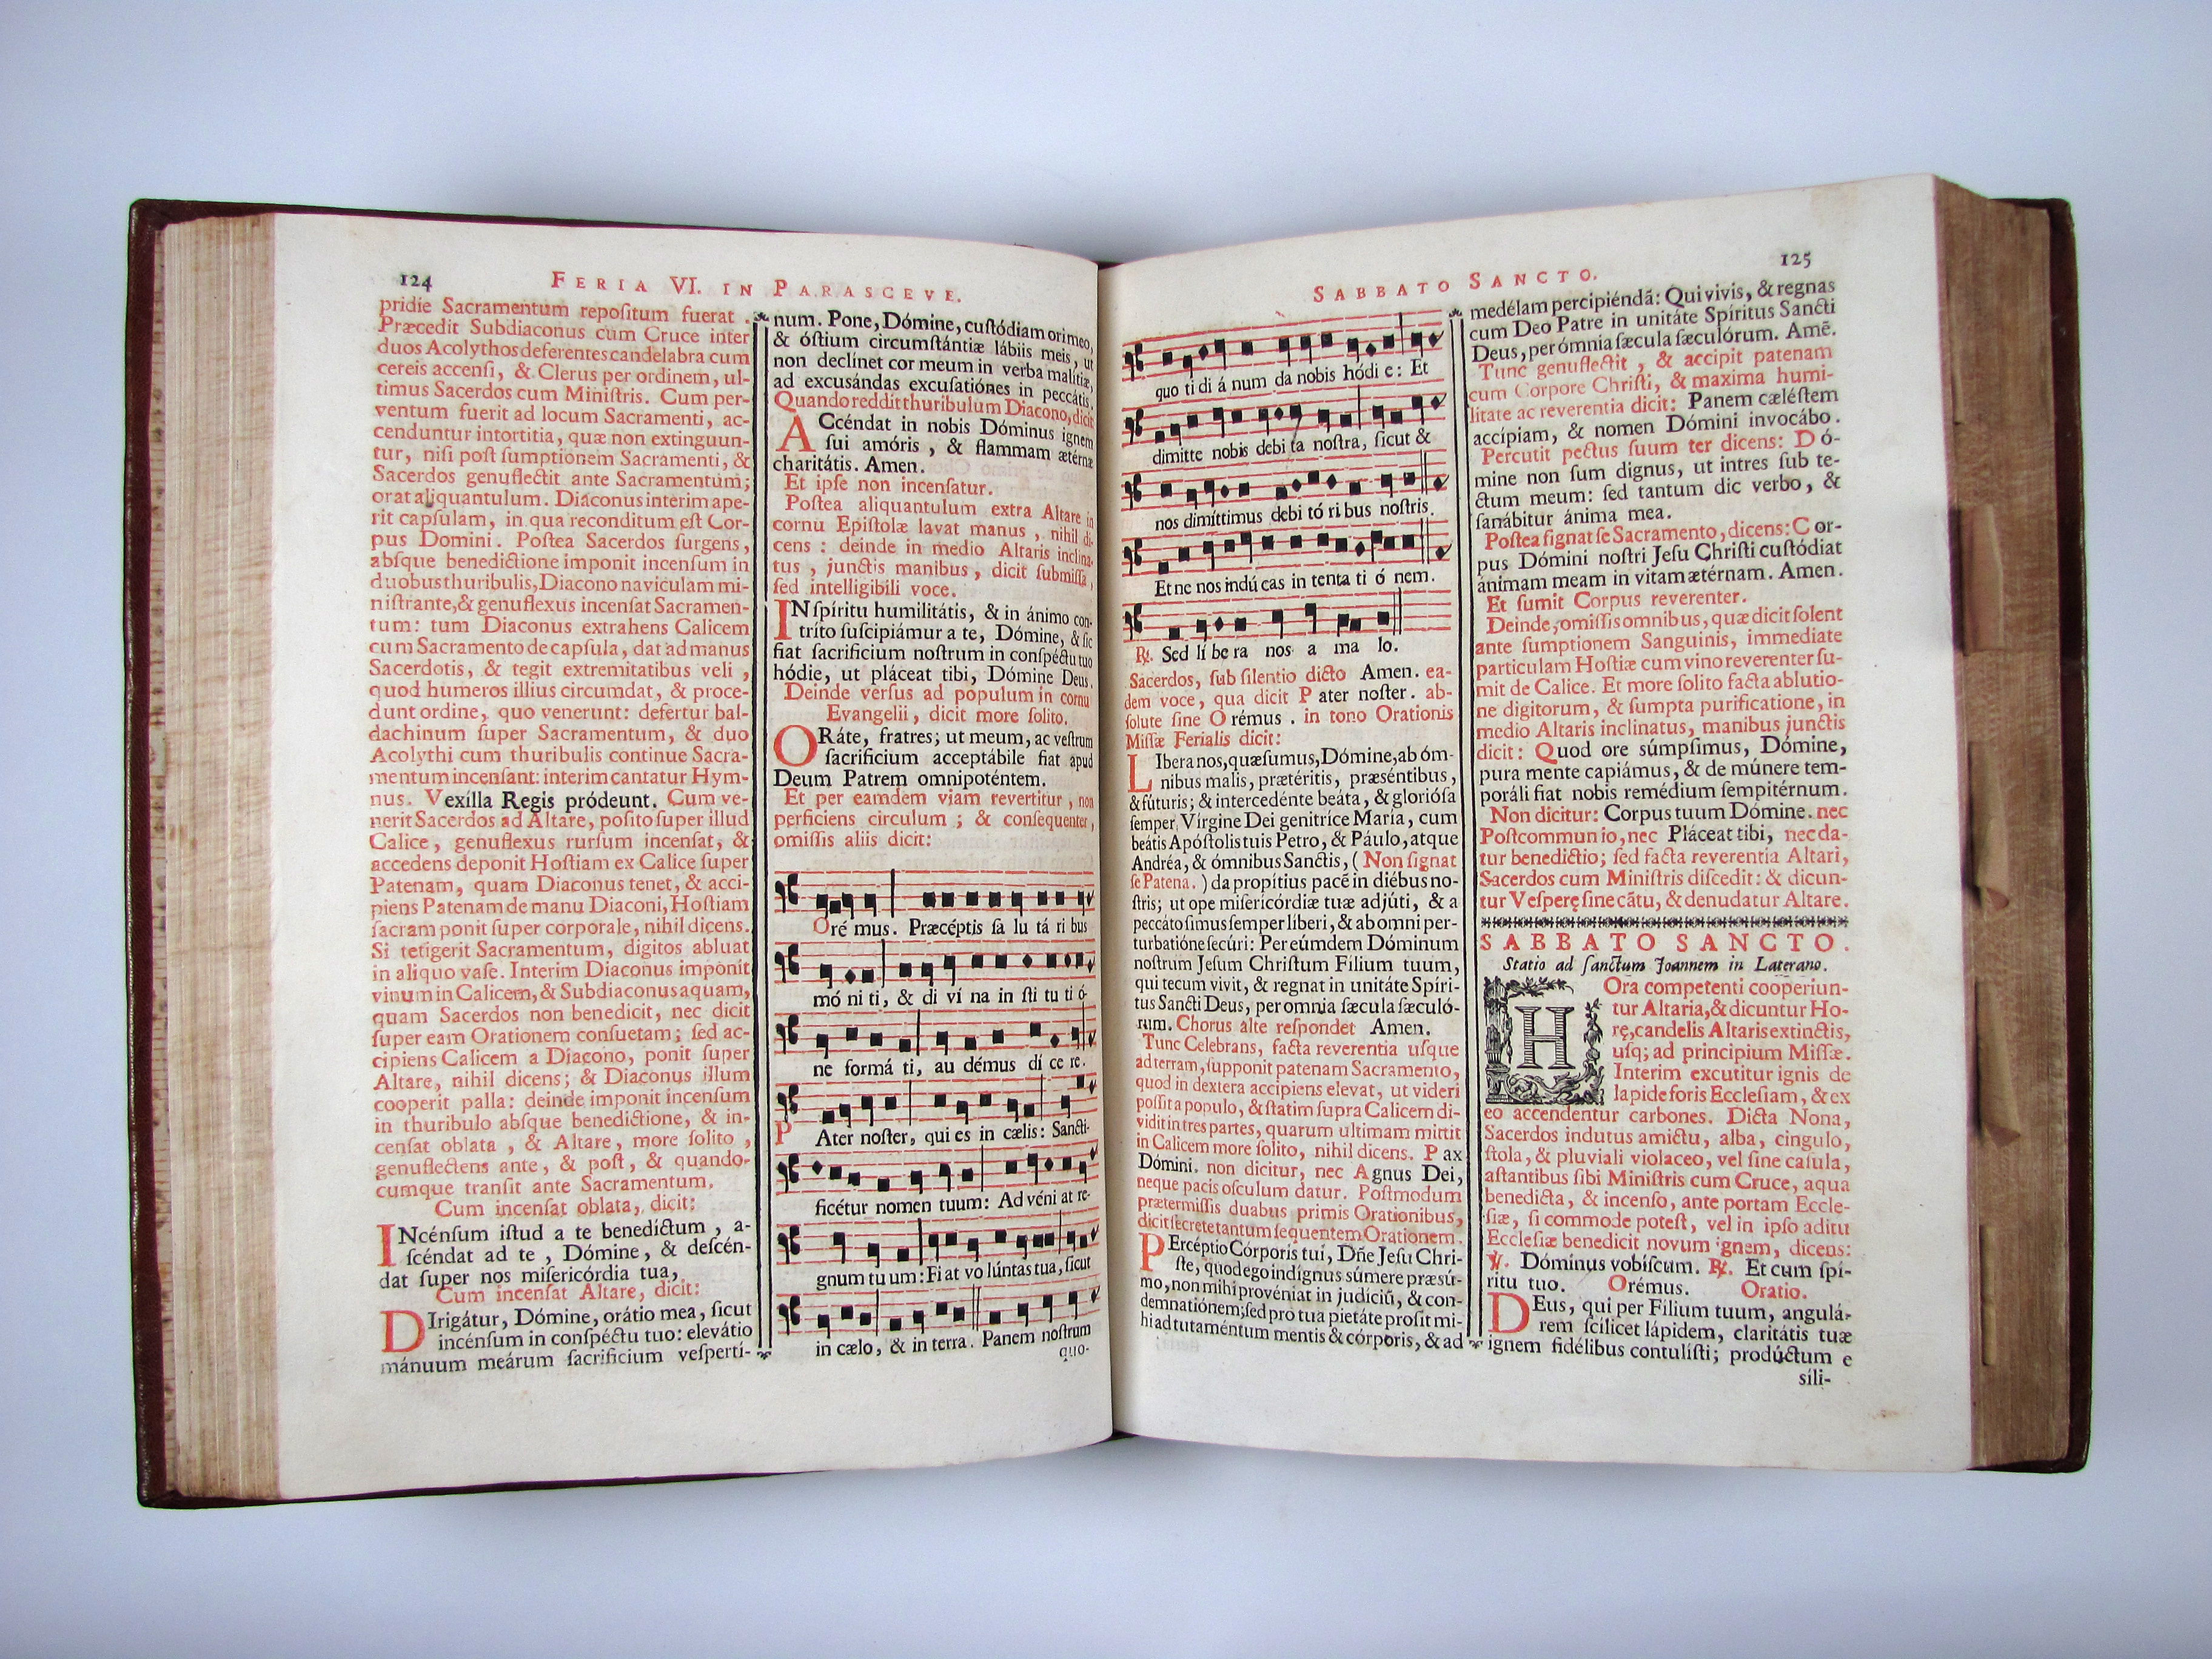 124
FERIA VI. IN PARASCEVE.
pridie Sacramentum repoſitum fuerat.
Præcedit Subdiaconus cum Cruce inter
duos Acolythos deferentes candelabra cum
cereis accenſi, & Clerus per ordinem, ul-
timus Sacerdos cum Miniſtris. Cum per-
ventum fuerit ad locum Sacramenti, ac-
cenduntur intortitia, quæ non extinguun-
tur, niſi poſt ſumptionem Sacramenti, &
Sacerdos genuflectit ante Sacramentum;
orat aliquantulum. Diaconus interim ape-
rit capſulam, in qua reconditum eſt Cor-
pus Domini. Poſtea Sacerdos ſurgens,
abſque benedictione imponit incenſum in
duobus thuribulis, Diacono naviculam mi-
niſtrante, & genuflexus incenſat Sacramen-
tum: tum Diaconus extrahens Calicem
cum Sacramento de capſula, dat ad manus
Sacerdotis, & tegit extremitatibus veli,
quod humeros illius circumdat, & proce-
dunt ordine, quo venerunt: defertur bal-
dachinum ſuper Sacramentum, & duo
Acolythi cum thuribulis continue Sacra-
mentum incenſant: interim cantatur Hym-
nus. Vexílla Regis pródeunt. Cum ve-
nerit Sacerdos ad Altare, poſito ſuper illud
Calice, genuflexus rurſum incenſat, &
accedens deponit Hoſtiam ex Calice ſuper
Patenam, quam Diaconus tenet, & acci-
piens Patenam de manu Diaconi, Hoſtiam
ſacram ponit ſuper corporale, nihil dicens.
Si tetigerit Sacramentum, digitos abluat
in aliquo vaſe. Interim Diaconus imponit
vinum in Calicem, & Subdiaconus aquam,
quam Sacerdos non benedicit, nec dicit
ſuper eam Orationem conſuetam; ſed ac-
cipiens Calicem a Diacono, ponit ſuper
Altare, nihil dicens; & Diaconus illum
cooperit palla: deinde imponit incenſum
in thuribulo abſque benedictione, & in-
cenſat oblata, & Altare, more ſolito,
genuflectens ante, & poſt, & quando-
cumque tranſit ante Sacramentum.
Cum incenſat oblata, dicit:
INcénſum iſtud a te benedíctum, a-
ſcéndat ad te, Dómine, & deſcén-
dat ſuper nos miſericórdia tua,
Cum incenſat Altare, dicit:
DIrigátur, Dómine, orátio mea, ſicut
incénſum in conſpéctu tuo: elevátio
mánuum meárum ſacrifícium veſpertí-
num. Pone, Dómine, cuſtódiam ori meo,
& óſtium circumſtántiæ lábiis meis, ut
non declínet cor meum in verba malítiæ,
ad excuſándas excuſatiónes in peccátis.
Quando reddit thuribulum Diacono, dicit
ACcéndat in nobis Dóminus ignem
ſui amóris, & flammam ætérnæ
charitátis. Amen.
Et ipſe non incenſatur.
Poſtea aliquantulum extra Altare in
cornu Epiſtolæ lavat manus, nihil di-
cens: deinde in medio Altaris inclina-
tus, junctis manibus, dicit ſubmiſſa,
ſed intelligibili voce.
IN ſpíritu humilitátis, & in ánimo con-
tríto ſuſcipiámur a te, Dómine, & ſic
fiat ſacrifícium noſtrum in conſpéctu tuo
hódie, ut pláceat tibi, Dómine Deus.
Deinde verſus ad populum in cornu
Evangelii, dicit more ſolito.
ORáte, fratres; ut meum, ac veſtrum
ſacrificium acceptábile fiat apud
Deum Patrem omnipoténtem.
Et per eamdem viam revertitur, non
perficiens circulum; & conſequenter,
omiſſis aliis dicit:
Oré mus. Præcéptis ſa lu tá ri bus
mó ni ti, & di ví na in ſti tu ti ó-
ne formá ti, au démus dí ce re.
PAter noſter, qui es in cælis: Sancti-
ficétur nomen tuum: Ad véni at re-
gnum tu um: Fi at vo lúntas tua, ſicut
in cælo, & in terra. Panem noſtrum
quo-
SABBATO SANCTO.
125
quo ti di á num da nobis hódi e: Et
dimitte nobis debi ta noſtra, ſicut &
nos dimíttimus debi tó ri bus noſtris.
Et ne nos indú cas in tenta ti ó nem.
℟. Sed lí be ra nos a ma lo.
Sacerdos, ſub ſilentio dicto Amen. ea-
dem voce, qua dicit Pater noſter. ab-
ſolute ſine Orémus. in tono Orationis
Miſſæ Ferialis dicit:
LIbera nos, quæſumus, Dómine, ab óm-
nibus malis, prætéritis, præséntibus,
& futúris; & intercedénte beáta, & glorióſa
ſemper Vírgine Dei genitríce María, cum
beátis Apóſtolis tuis Petro, & Páulo, atque
Andréa, & ómnibus Sanctis, (Non ſignat
ſe Patena.) da propítius pacẽ in diébus no-
ſtris; ut ope miſericórdiæ tuæ adjúti, & a
peccáto ſimus ſemper líberi, & ab omni per-
turbatióne ſecúri: Per eúmdem Dóminum
noſtrum Jeſum Chriſtum Filium tuum,
qui tecum vivit, & regnat in unitáte Spíri-
tus Sancti Deus, per omnia ſæcula ſæculó-
rum. Chorus alte reſpondet Amen.
Tunc Celebrans, facta reverentia uſque
ad terram, ſupponit patenam Sacramento,
quod in dextera accipiens elevat, ut videri
poſſit a populo, & ſtatim ſupra Calicem di-
vidit in tres partes, quarum ultimam mittit
in Calicem more ſolito, nihil dicens. Pax
Dómini. non dicitur, nec Agnus Dei,
neque pacis oſculum datur. Poſtmodum
prætermiſſis duabus primis Orationibus,
dicit ſecrete tantum ſequentem Orationem.
PErcéptio Córporis tui, Dñe Jeſu Chri-
ſte, quod ego indígnus súmere præsú-
mo, non mihi provéniat in judíciũ, & con-
demnatiónem; ſed pro tua pietáte proſit mi-
hi ad tutaméntum mentis & córporis, & ad
medélam percipiéndã: Qui vivis, & regnas
cum Deo Patre in unitáte Spíritus Sancti
Deus, per ómnia ſæcula ſæculórum. Amẽ.
Tunc genuflectit, & accipit patenam
cum Corpore Chriſti, & maxima humi-
litate ac reverentia dicit: Panem cæléſtem
accípiam, & nomen Dómini invocábo.
Percutit pectus ſuum ter dicens: Dó-
mine non ſum dignus, ut intres ſub te-
ctum meum: ſed tantum dic verbo, &
ſanábitur ánima mea.
Poſtea ſignat ſe Sacramento, dicens: Cor-
pus Dómini noſtri Jeſu Chriſti cuſtódiat
ánimam meam in vitam ætérnam. Amen.
Et ſumit Corpus reverenter.
Deinde, omiſſis omnibus, quæ dici ſolent
ante ſumptionem Sanguinis, immediate
particulam Hoſtiæ cum vino reverenter ſu-
mit de Calice. Et more ſolito facta ablutio-
ne digitorum, & ſumpta purificatione, in
medio Altaris inclinatus, manibus junctis
dicit: Quod ore súmpſimus, Dómine,
pura mente capiámus, & de múnere tem-
poráli fiat nobis remédium ſempitérnum.
Non dicitur: Corpus tuum Dómine. nec
Poſtcommunio, nec Pláceat tibi, nec da-
tur benedictio; ſed facta reverentia Altari,
Sacerdos cum Miniſtris diſcedit: & dicun-
tur Veſperę ſine cãtu, & denudatur Altare.
SABBATO SANCTO.
Statio ad ſanctum Joannem in Laterano.
HOra competenti cooperiun-
tur Altaria, & dicuntur Ho-
rę, candelis Altaris extinctis,
uſq; ad principium Miſſæ.
Interim excutitur ignis de
lapide foris Eccleſiam, & ex
eo accendentur carbones. Dicta Nona,
Sacerdos indutus amictu, alba, cingulo,
ſtola, & pluviali violaceo, vel ſine caſula,
aſtantibus ſibi Miniſtris cum Cruce, aqua
benedicta, & incenſo, ante portam Eccle-
ſiæ, ſi commode poteſt, vel in ipſo aditu
Eccleſiæ benedicit novum ignem, dicens:
℣. Dóminus vobíſcum. ℟. Et cum ſpí-
ritu tuo. Orémus. Oratio.
DEus, qui per Fílium tuum, angulá-
rem ſcílicet lápidem, claritátis tuæ
ignem fidélibus contulíſti; prodúctum e
síli-